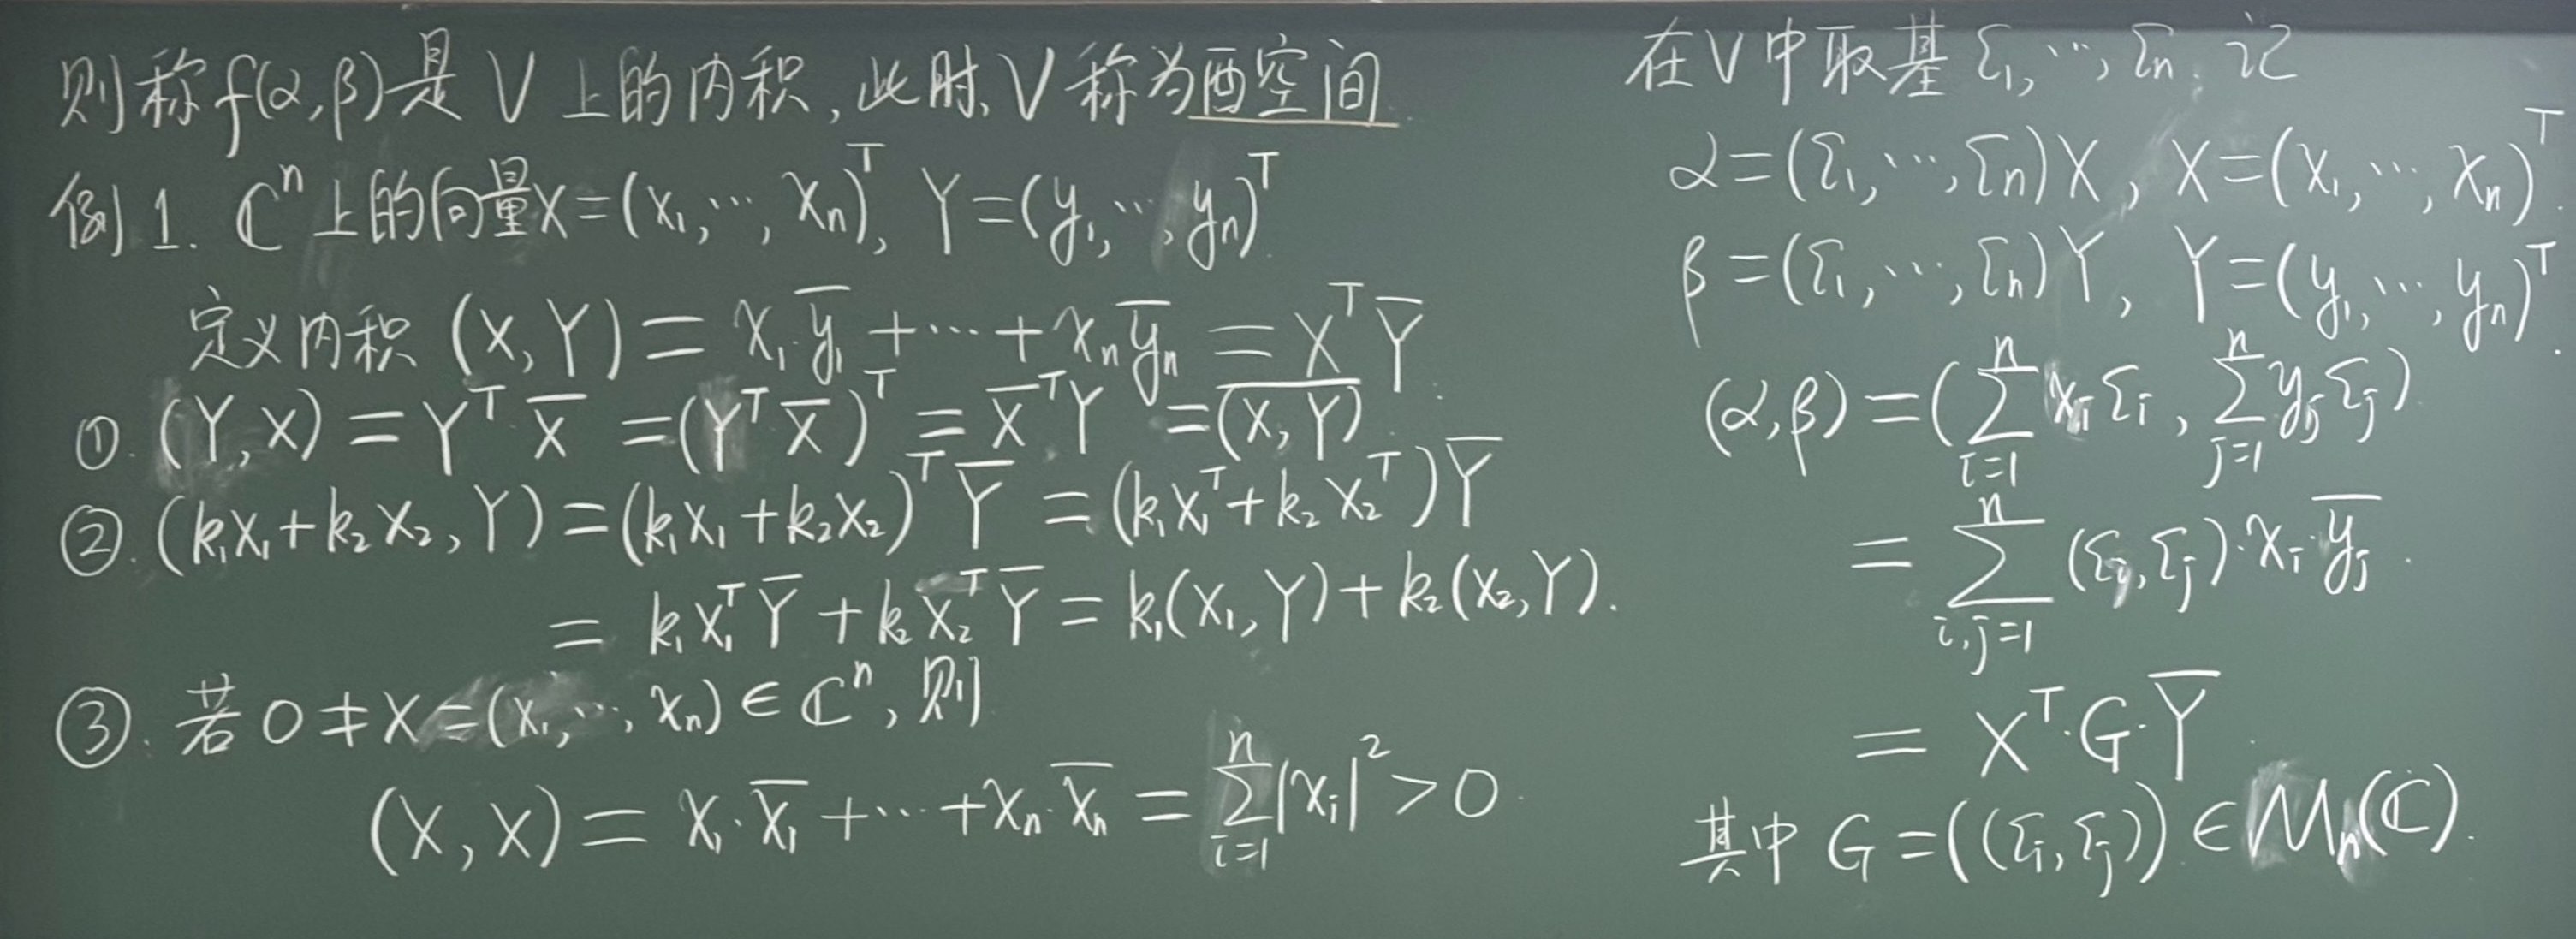 则称f(α,β)是V上的内积,此时,V称为酉空间
例1. ℂⁿ上的向量X=(x₁,…,xₙ)ᵀ, Y=(y₁,…,yₙ)ᵀ.
定义内积 (X,Y) = x₁·y̅₁+⋯+xₙy̅ₙ = XᵀY̅.
①. (Y,X) = Yᵀ·X̅ = (YᵀX̅)ᵀ = X̅ᵀY = \overline{(X,Y)}
②. (k₁X₁+k₂X₂,Y) = (k₁X₁+k₂X₂)ᵀY̅ = (k₁X₁ᵀ+k₂X₂ᵀ)Y̅
= k₁X₁ᵀY̅+k₂X₂ᵀY̅ = k₁(X₁,Y)+k₂(X₂,Y).
③. 若0≠X=(x₁,…,xₙ)∈ℂⁿ,则
(X,X) = x₁·x̅₁+⋯+xₙ·x̅ₙ = \sum_{i=1}^{n}|xᵢ|²>0.
在V中取基 ε₁,…,εₙ. 记
α=(ε₁,…,εₙ)X, X=(x₁,…,xₙ)ᵀ.
β=(ε₁,…,εₙ)Y, Y=(y₁,…,yₙ)ᵀ.
(α,β)=(\sum_{i=1}^{n}xᵢεᵢ, \sum_{j=1}^{n}yⱼεⱼ)
= \sum_{i,j=1}^{n}(εᵢ,εⱼ)·xᵢ·y̅ⱼ.
= Xᵀ·G·Y̅.
其中 G=((εᵢ,εⱼ))∈Mₙ(ℂ).